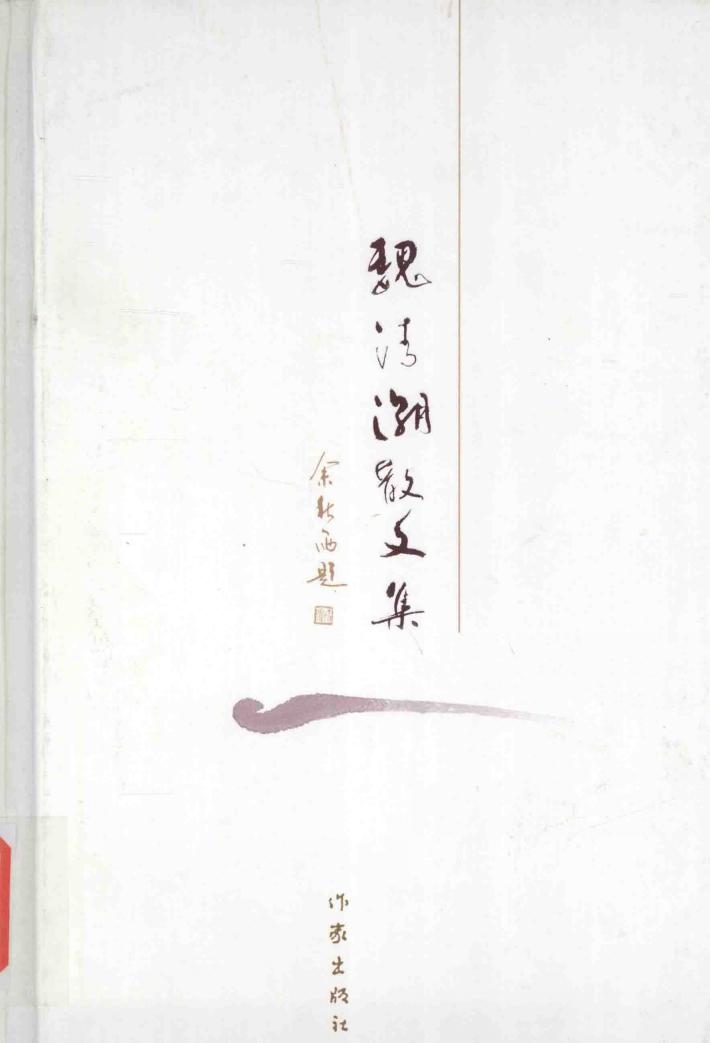 魏清潮散文集
余秋雨题
作家出版社